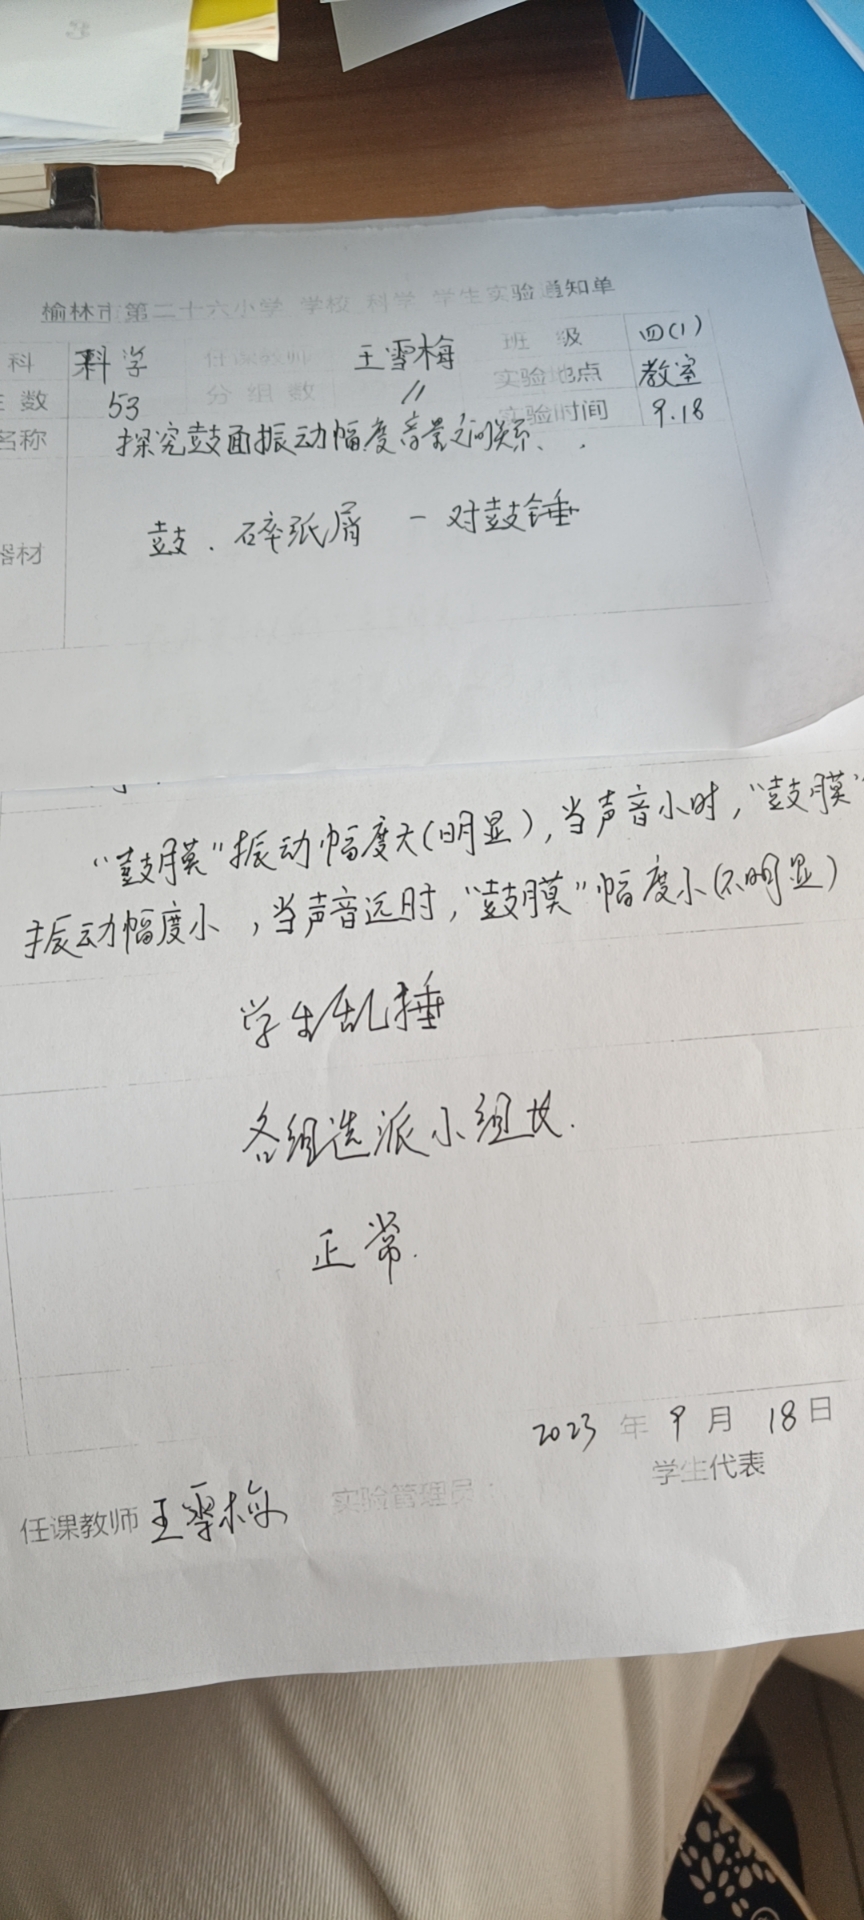 榆林市第二十六小学 学校 科学 学生实验通知单
科 科学 任课教师 王雪梅 班 级 四(1)
数 53 分 组 数 11 实验地点 教室
实验时间 9.18
名称 探究鼓面振动幅度音量之间关系、
器材 鼓.碎纸屑 一对鼓锤
“鼓膜”振动幅度大(明显),当声音小时,“鼓膜”
振动幅度小,当声音远时,“鼓膜”幅度小(不明显)
学生乱捶
各组选派小组长.
正常.
2023 年 9 月 18 日
任课教师 王雪梅 实验管理员: 学生代表